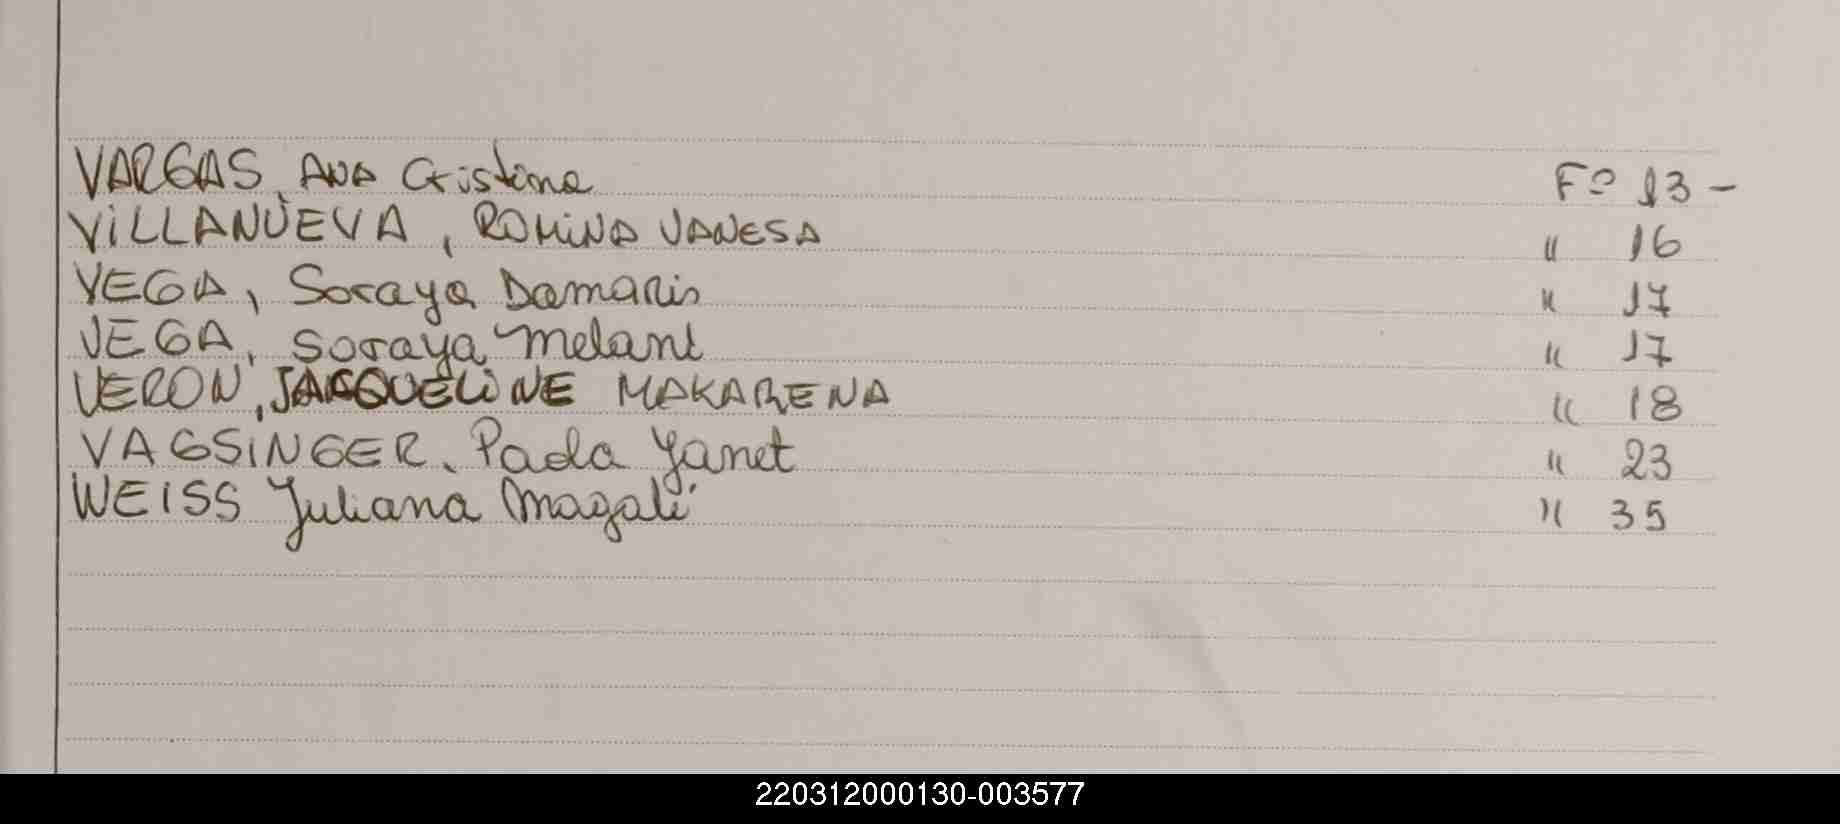 VARGAS, ANA Cristina Fº 13 -
VILLANUEVA, ROMINA VANESA " 16
VEGA, Soraya Damaris " 17
VEGA, Soraya Melani " 17
VERON, JACQUELINE MAKARENA " 18
VAGSINGER, Paola Yanet " 23
WEISS Juliana Magalí " 35
220312000130-003577